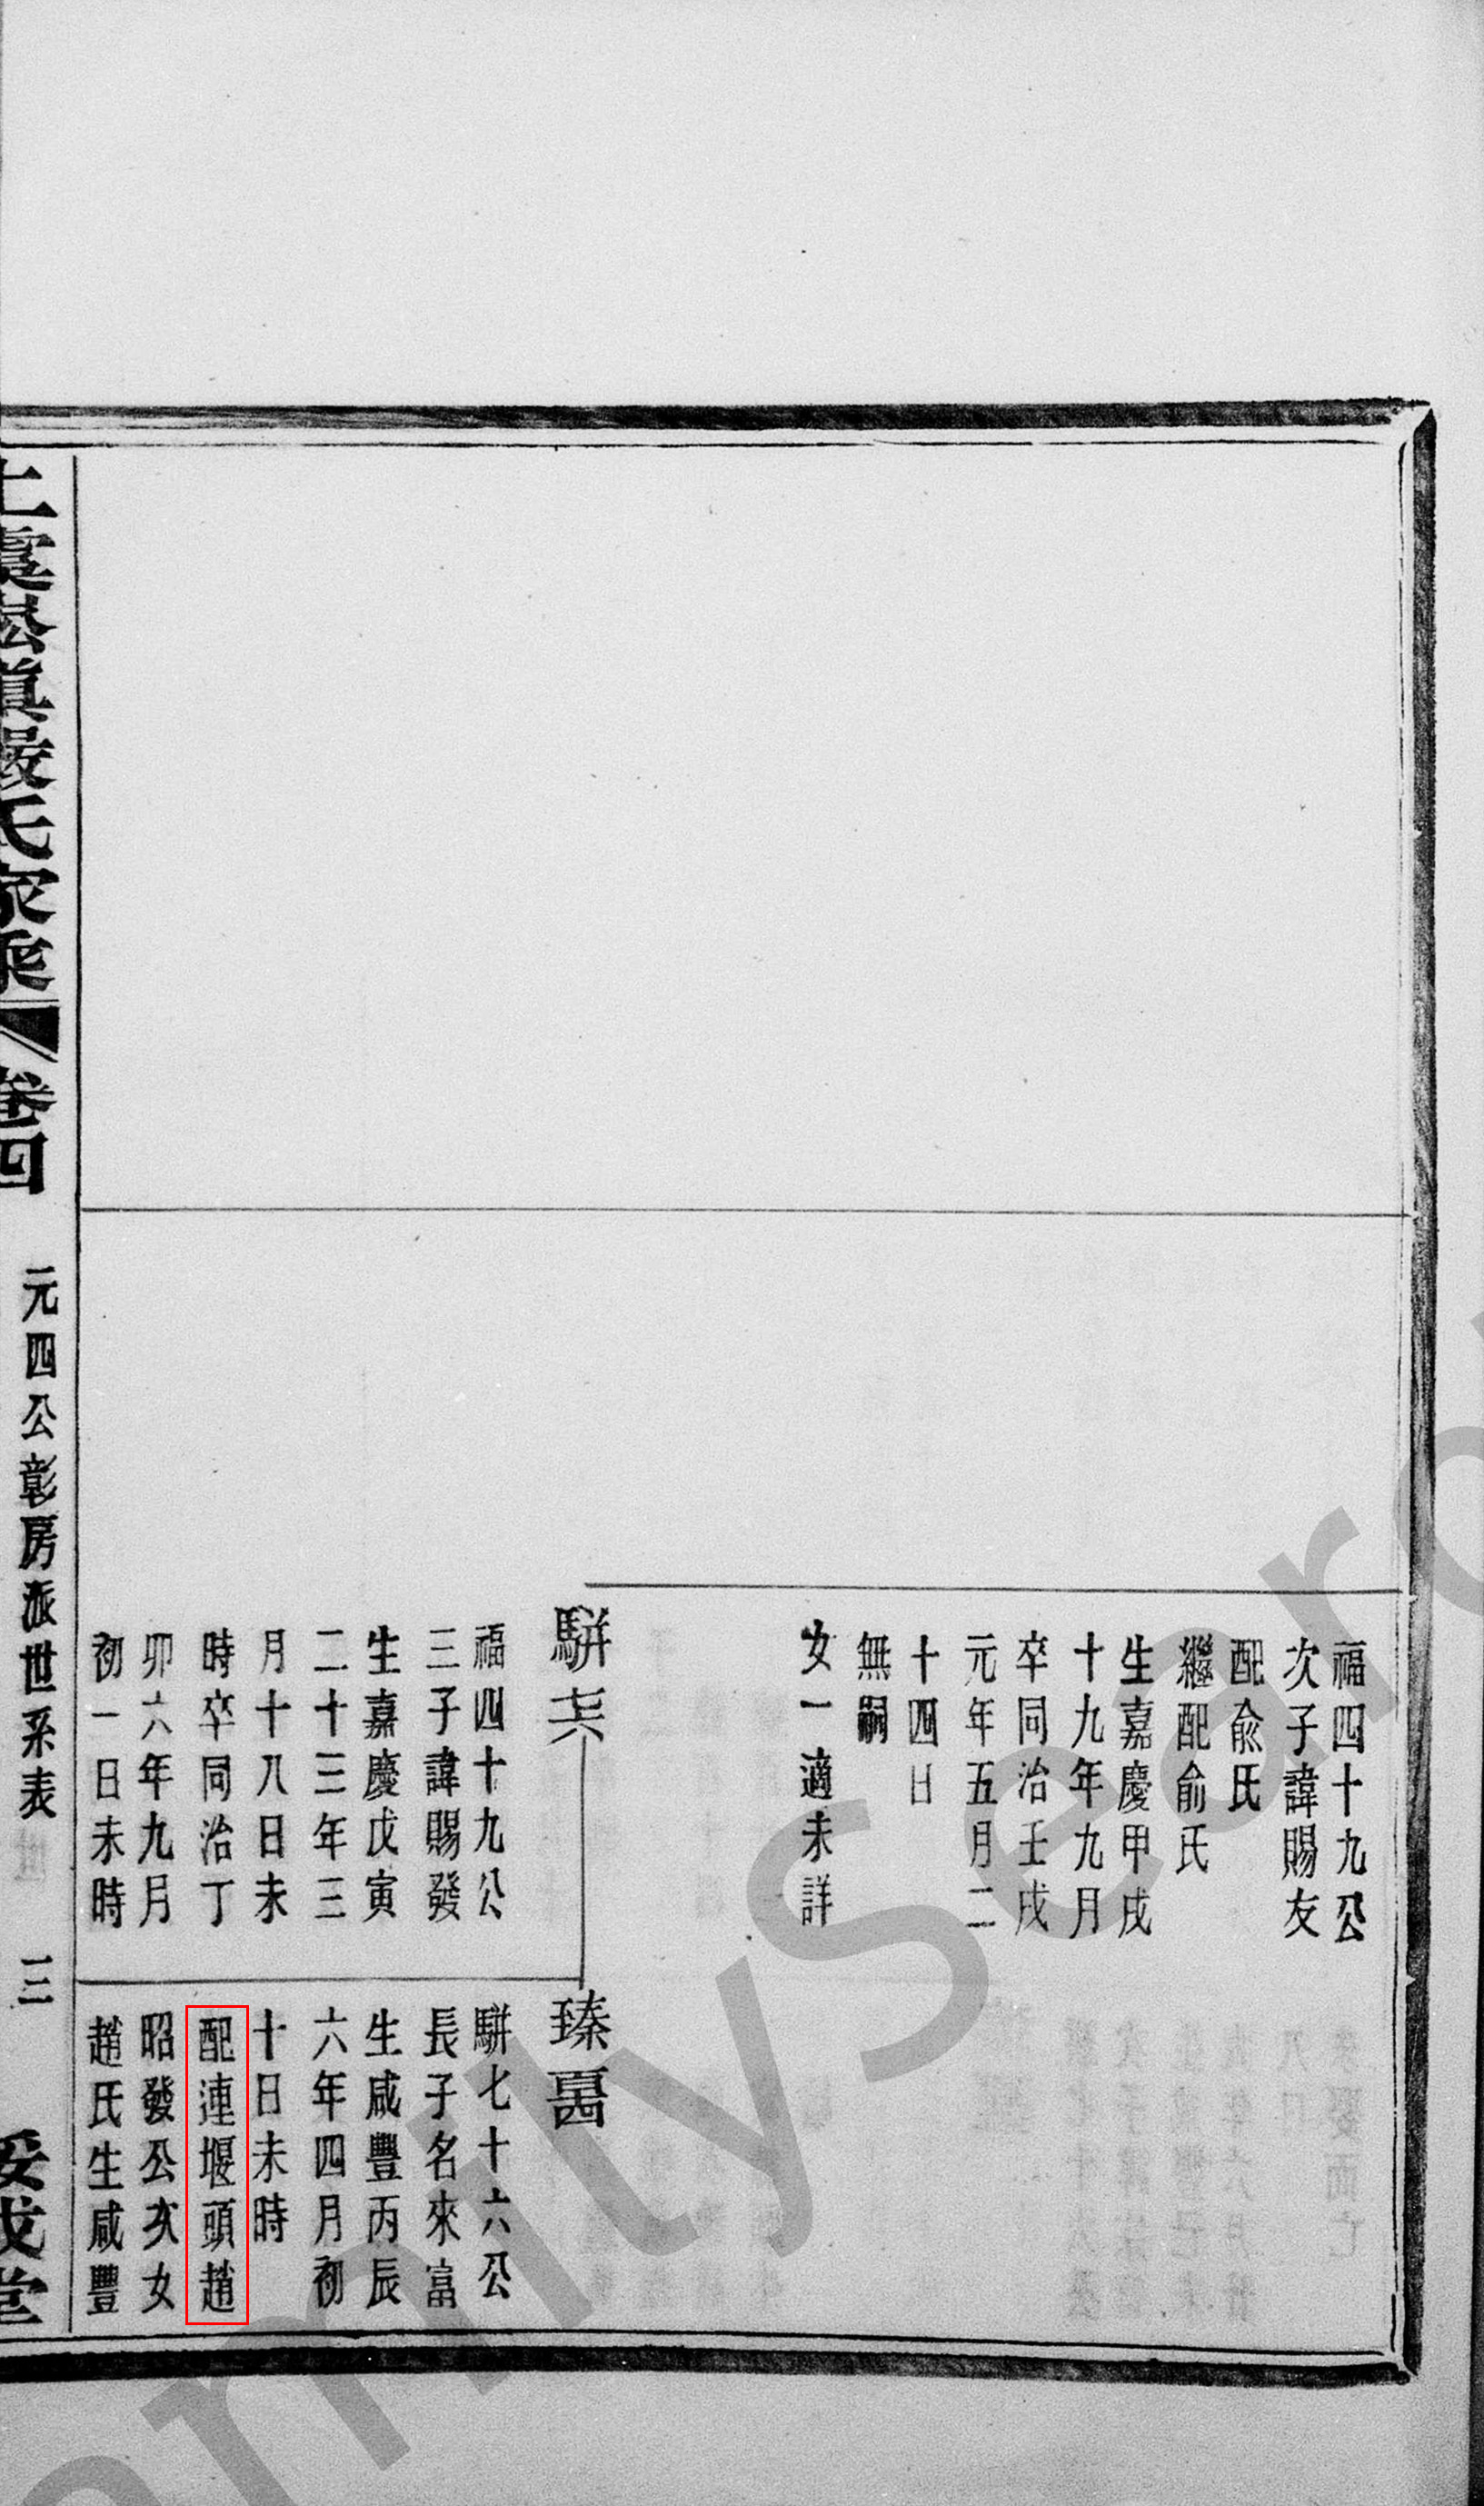 福四十九公
次子諱賜友
配兪氏
繼配俞氏
生嘉慶甲戌
十九年九月
卒同治壬戌
元年五月二
十四日
無嗣
女一適未詳
駢
福四十九公
三子諱賜發
生嘉慶戊寅
二十三年三
月十八日未
時卒同治丁
卯六年九月
初一日未時
瑧
駢七十六公
長子名來富
生咸豐丙辰
六年四月初
十日未時
配連堰頭趙
昭發公次女
趙氏生咸豐
上虞松鎭嚴氏家乘 卷四 元四公彰房派世系表 三
familysearch